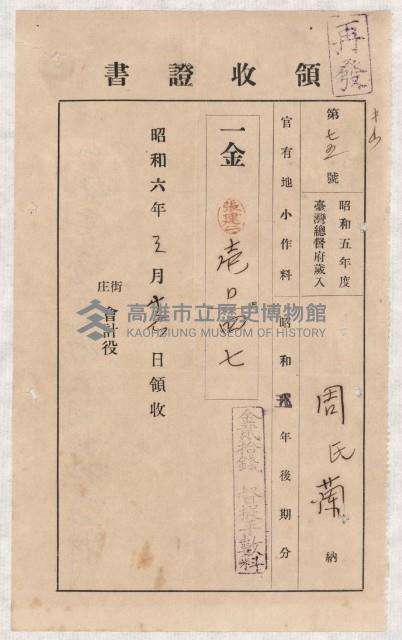 再發
領收證書
第七五號
昭和五年度
臺灣總督府歲入
周氏蘭 納
官有地小作料昭和 年後期分
金貳拾錢 督促手數料
一金 壱 四七
張建
昭和六年三月 日領收
街
庄
會計役
高雄市立歷史博物館
KAOHSIUNG MUSEUM OF HISTORY